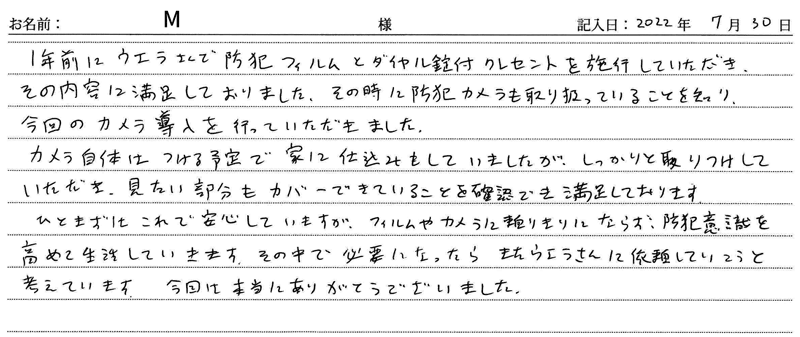 お名前： M 様 記入日：2022年 7月 30日
1年前に ウエラさんで 防犯 フィルム と ダイヤル錠付 クレセント を 施行していただき、
その内容に満足しておりました。その時に防犯カメラも取り扱っていることを知り、
今回の カメラ 導入を 行っていただきました。
カメラ自体は つける予定で 家に 仕込みもしていましたが、しっかりと取りつけして
いただき、見たい部分も カバーできていることを確認でき 満足しております。
ひとまずは これで 安心していますが、フィルムやカメラに頼りきりに ならず、防犯意識を
高めて生活していきます。その中で 必要になったら またウエラさんに依頼していこうと
考えています。 今回は本当にありがとうございました。